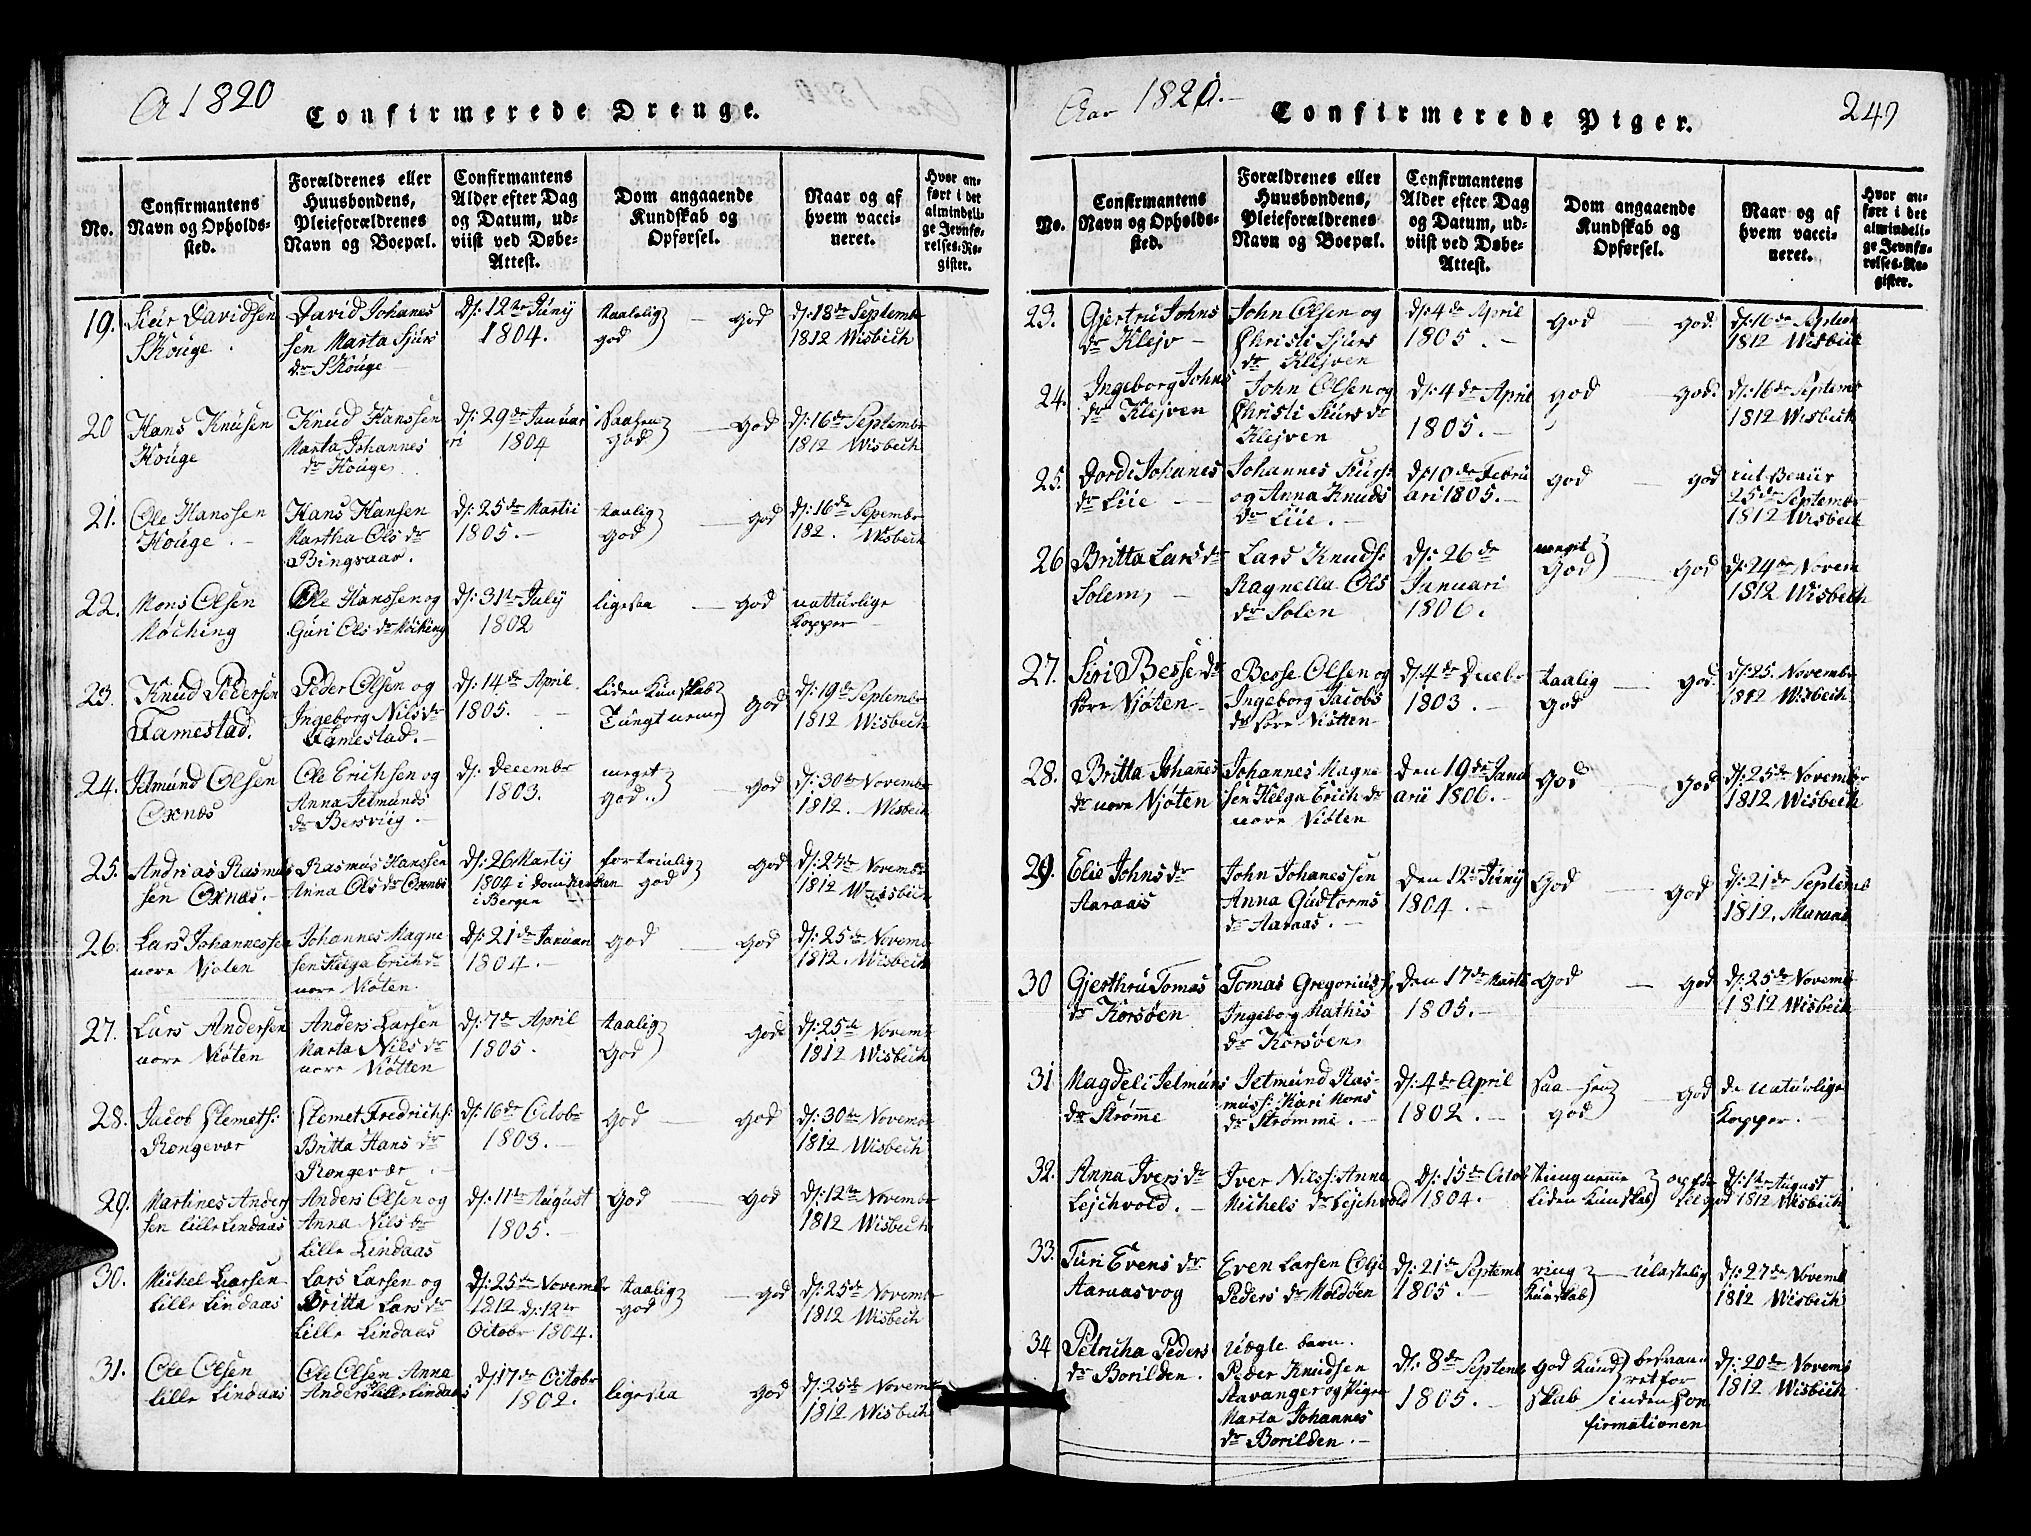 A 1820
Confirmerede Drenge.
No.
Confirmantens
Navn og Opholds-
sted.
Forældrenes eller
Huusbondens,
Pleieforældrenes
Navn og Boepæl.
Confirmantens
Alder efter Dag
og Datum, ud-
viist ved Døbe-
Attest.
Dom angaaende
Kundskab og
Opførsel.
Naar og af
hvem vacci-
neret.
Hvor an-
ført i det
almindeli-
ge Jevnfø-
relses-Re-
gister.
19.
Siur Davidsen
Skouge.
David Johanes
sen Marta Sjurs
dr Skouge
d: 12te Juny
1804.
taalelig
god
god
d: 18de Septembr
1812 Wisbech
20
Hans Knusen
Kouge
Knud Hanssen
Marta Johannes
dr Kouge
d: 29de Januar
ri 1804
god
god
d: 16de Septembr
1812 Wisbech
21.
Ole Hanssen
Kouge.
Hans Hansen
Martha Ols dr
Bingvaar.
d: 25de Martii
1805.
taalig
god
god
d: 16de Sepembr
182. Wisbech
22.
Mons Olsen
Møching
Ole Hanssen og
Guri Ols dr Møching
d: 31te July
1802
ligesaa
god
natturlige
kopper
23.
Knud Pedersen
Famestad.
Peder Olsen og
Ingeborg Nils dr
Famestad.
d: 14de April
1805.
liden Kunskab
Tungt neme
god
d: 19de Septembr
1812 Wisbech
24.
Jetmund Olsen
Oxnæs
Ole Erichsen og
Anna Jetmunds
dr Bersvig.
d: Decembr
1803.
meget
god..
god
d: 30te Novembr
1812. Wisbech
25.
Andreas Rasmus
sen Oxnæs.
Rasmus Hanssen
Anna Ols dr Oxnæs
d: 26 Martij
1804 i Domkerken
i Bergen
fortrinlig
god
god
d: 27de Novembr
1812 Wisbech
26.
Lars Johannessen
nore Njøten
Johannes Magne
sen Helga Erich dr
nore Niøten.
d: 21de Januari
1804.
god
god
d: 25de Novembr
1812. Wisbech
27.
Lars Andersen
nore Niøten
Anders Larsen
Marta Nils dr
nore Niøtten
d: 7de April
1805.
taalig
God
God
d: 25de Novembr
1812 Wisbech
28.
Jacob Clemets:
Rongevær
Clemet Fredrichs:
Britta Hans dr
Rongevær.
d: 16de Octobr
1803.
god
god
d: 30te Novembr
1812 Wisbech
29.
Martines Anders
sen Lille Lindaas
Anders Olsen og
Anna Nils dr
Lille Lindaas
d: 11te August
1805.
god
god
d: 12te Novembr
1812 Wisbech
30.
Mickel Larsen
Lille Lindaas
Lars Larsen og
Britta Lars dr
Lille Lindaas
d: 25de Novembr
1812 d: 12te
Octobr 1804.
taalig
god
god
d: 25de Novembr
1812 Wisbech
31.
Ole Olsen
Lille Lindaas
Ole Olsen Anna
Anders Lille Lindaas
d: 17de Octobr
1802.
ligesaa
god
d: 25de Novembr
1812 Wisbech
Aar 1820.
Confirmerede Piger.
249
No.
Confirmantens
Navn og Opholds-
sted.
Forældrenes eller
Huusbondens,
Pleieforældrenes
Navn og Boepæl.
Confirmantens
Alder efter Dag
og Datum, ud-
viist ved Døbe-
Attest.
Dom angaaende
Kundskab og
Opførsel.
Naar og af
hvem vacci-
neret.
Hvor an-
ført i det
almindeli-
ge Jevnfø-
relses-Re-
gister.
23.
Gjertru Johns
dr Klejv
John Olsen og
Christi Sjurs
dr Klejven
d: 4de April
1805.
god
god.
d: 16de Septem
1812 Wisbech
24.
Ingeborg Johns
dr Klejven
John Olsen og
Christi Siurs dr
Klejven
d: 4de April
1805.
god
god.
d: 16de Septemb
1812 Wisbech
25.
Dordi Johanes
dr Liie
Johannes Siurs:
og Anna Knuds
dr Liie.
d: 10de Febru
ari 1805.
god
god
25de Septembr
1812 Wisbech
26
Britta Lars dr
Solem,
Lars Knuds:
Ragnella Ols
dr Solen
d: 26de
Januari
1806.
meget
God
god
d: 24de Novem
1812 Wisbech
27.
Siri Besse dr
søre Njøten
Besse Olsen og
Ingeborg Jacobs
dr søre Niøtten
d: 4de Decbr
1803.
taalig
god
god.
d: 25. Novembr
1812 Wisbech
28.
Britta Johannes
dr nore Njøten
Johannes Magne
sen Helga Erich dr
nore Niøten
den 19de Janu
arii 1806.
god
god
d: 25de Novembr
1812 Wisbech
29.
Elie Johns dr
Aaraas
John Johanessen
Anna Gudtorms
dr Aaraas.
den 12te Juny
1804.
God
god
d: 21de Septemb
1812.
30
Gjerthru Tomas
dr Korsøen
Tomas Gregorius:
Ingeborg Mathis
dr Korsøen
den 17de Marti
1805.
God
god
d: 25de Novemb
1812 Wisbech
31
Magdeli Jetmuns
dr Strømme
Jetmund Ras-
muss: Kari Mons
dr Strømme.
d: 4de April
1802.
god
god
de naturlige
Kopper.
32.
Anna Ivers dr
Lejchvold.
Iver Nilss: Anna
Michels dr Lejchvold
d: 15de Octob
1804.
tung nemme
liden Kunskab
d: 12te August
1812 Wisbech
33.
Turi Evens dr
Aaraasvog
Even Larsen
Peders dr Moldøen
d: 21de Septemb
1805.
ring
Kunskab
ulastelig
d: 27de Novemb
1812 Wisbech
34
Petricha Peders
dr Borilden.
Uægte barn.
Peder Knudsen
Stavanger og Pigen
Marta Johannes
dr Borilden.
d: 8de Septemb
1805.
god Kund
skab
besvaan
ret for
inden Con
firmationen
d: 20de Novemb
1812 Wisbech